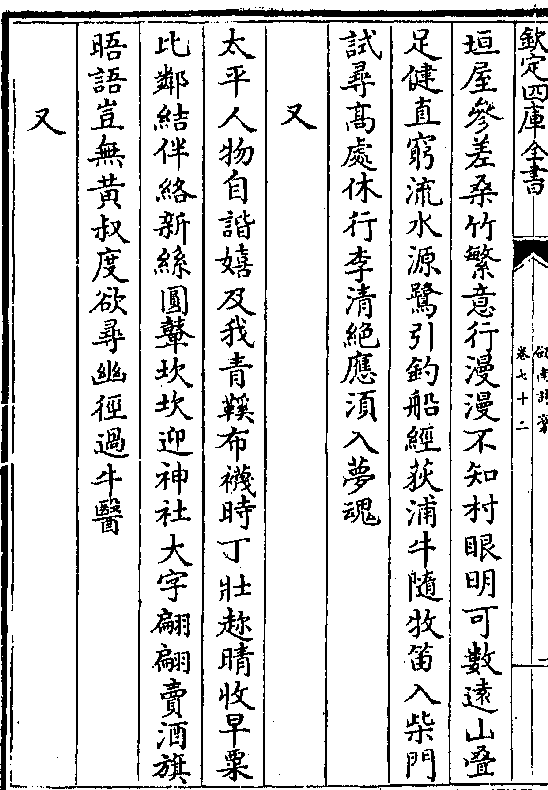 欽定四庫全書
卷七十二
垣屋參差桑竹繁意行漫漫不知村眼明可數逺山疊
足健直窮流水源鷺引釣船經荻浦牛隨牧笛入柴門
試尋髙處休行李清絶應湏入夢魂
又
太平人物自諧嬉及我青鞵布襪時丁壯趂晴收早粟
比鄰結伴絡新絲圓鼙坎坎迎神社大字翩翩賣酒旗
晤語豈無黄叔度欲尋幽徑過牛醫
又